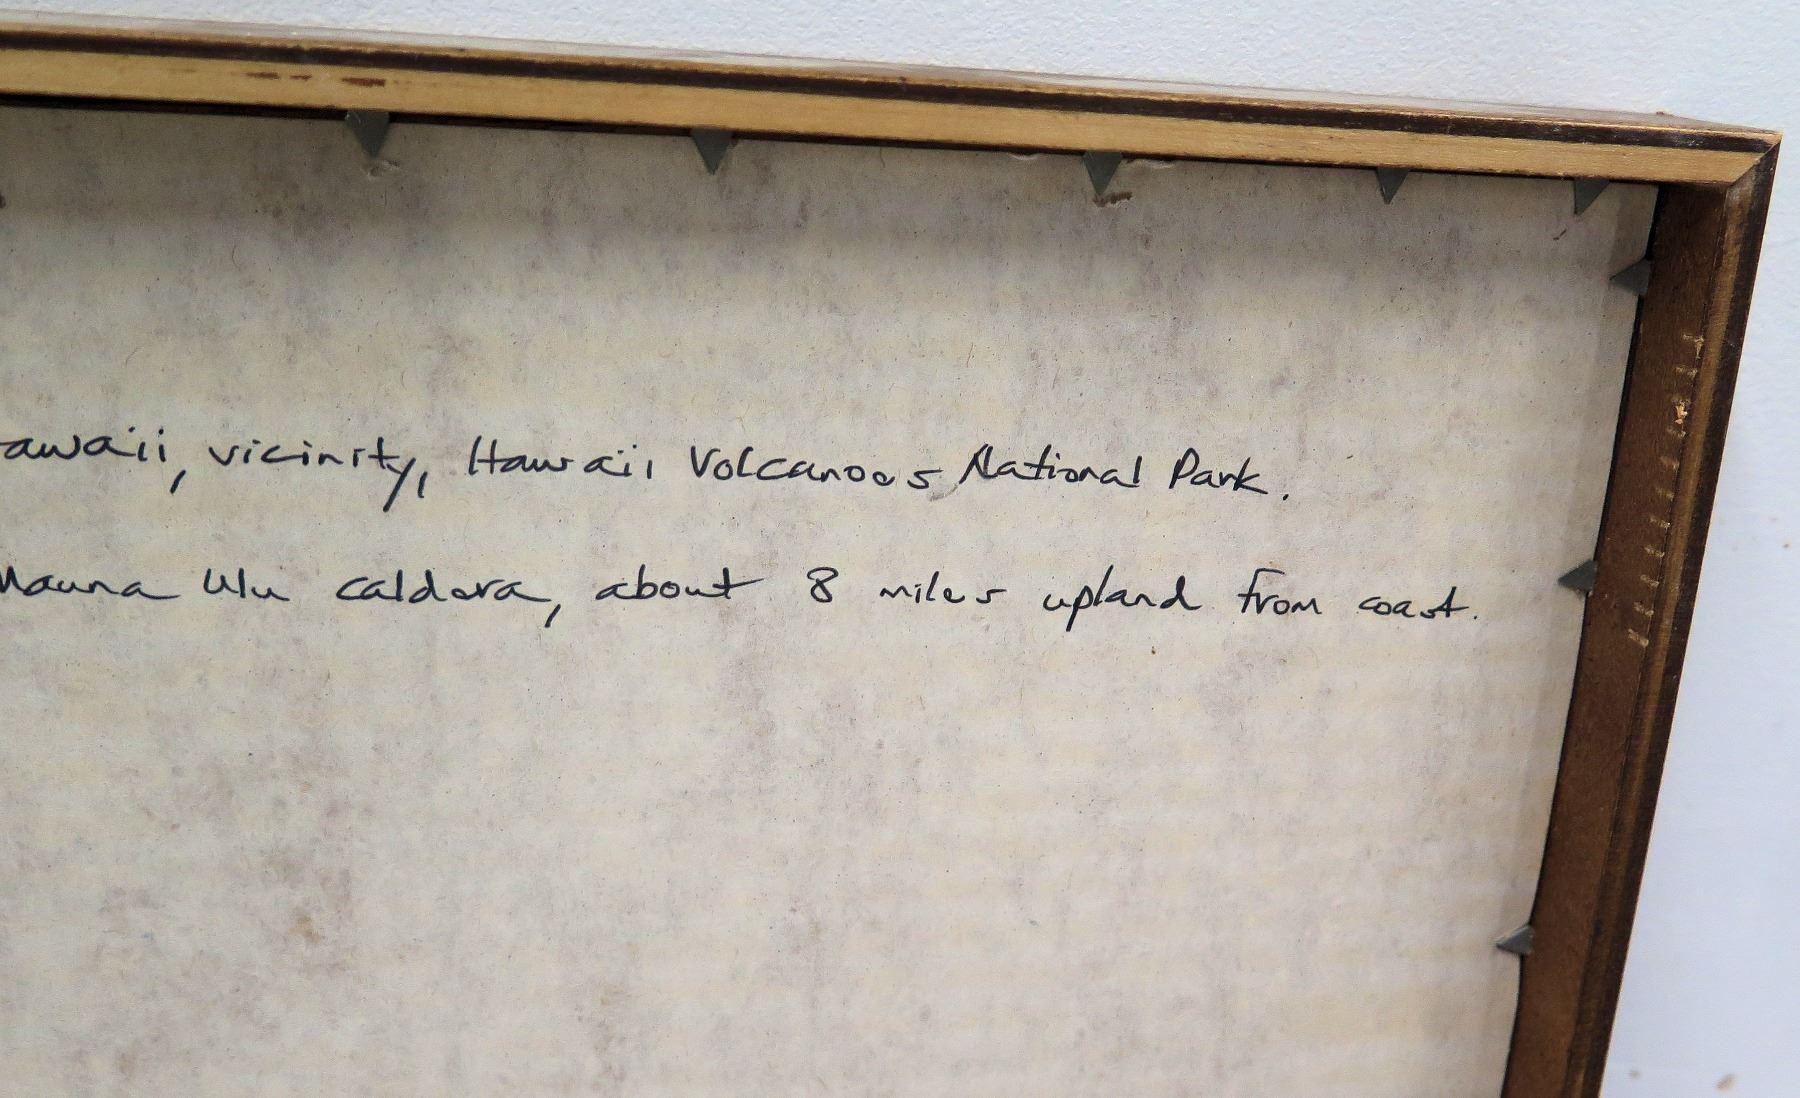 awaii, vicinity, Hawaii Volcanoes National Park.
Mauna Ulu caldera, about 8 miles upland from coast.